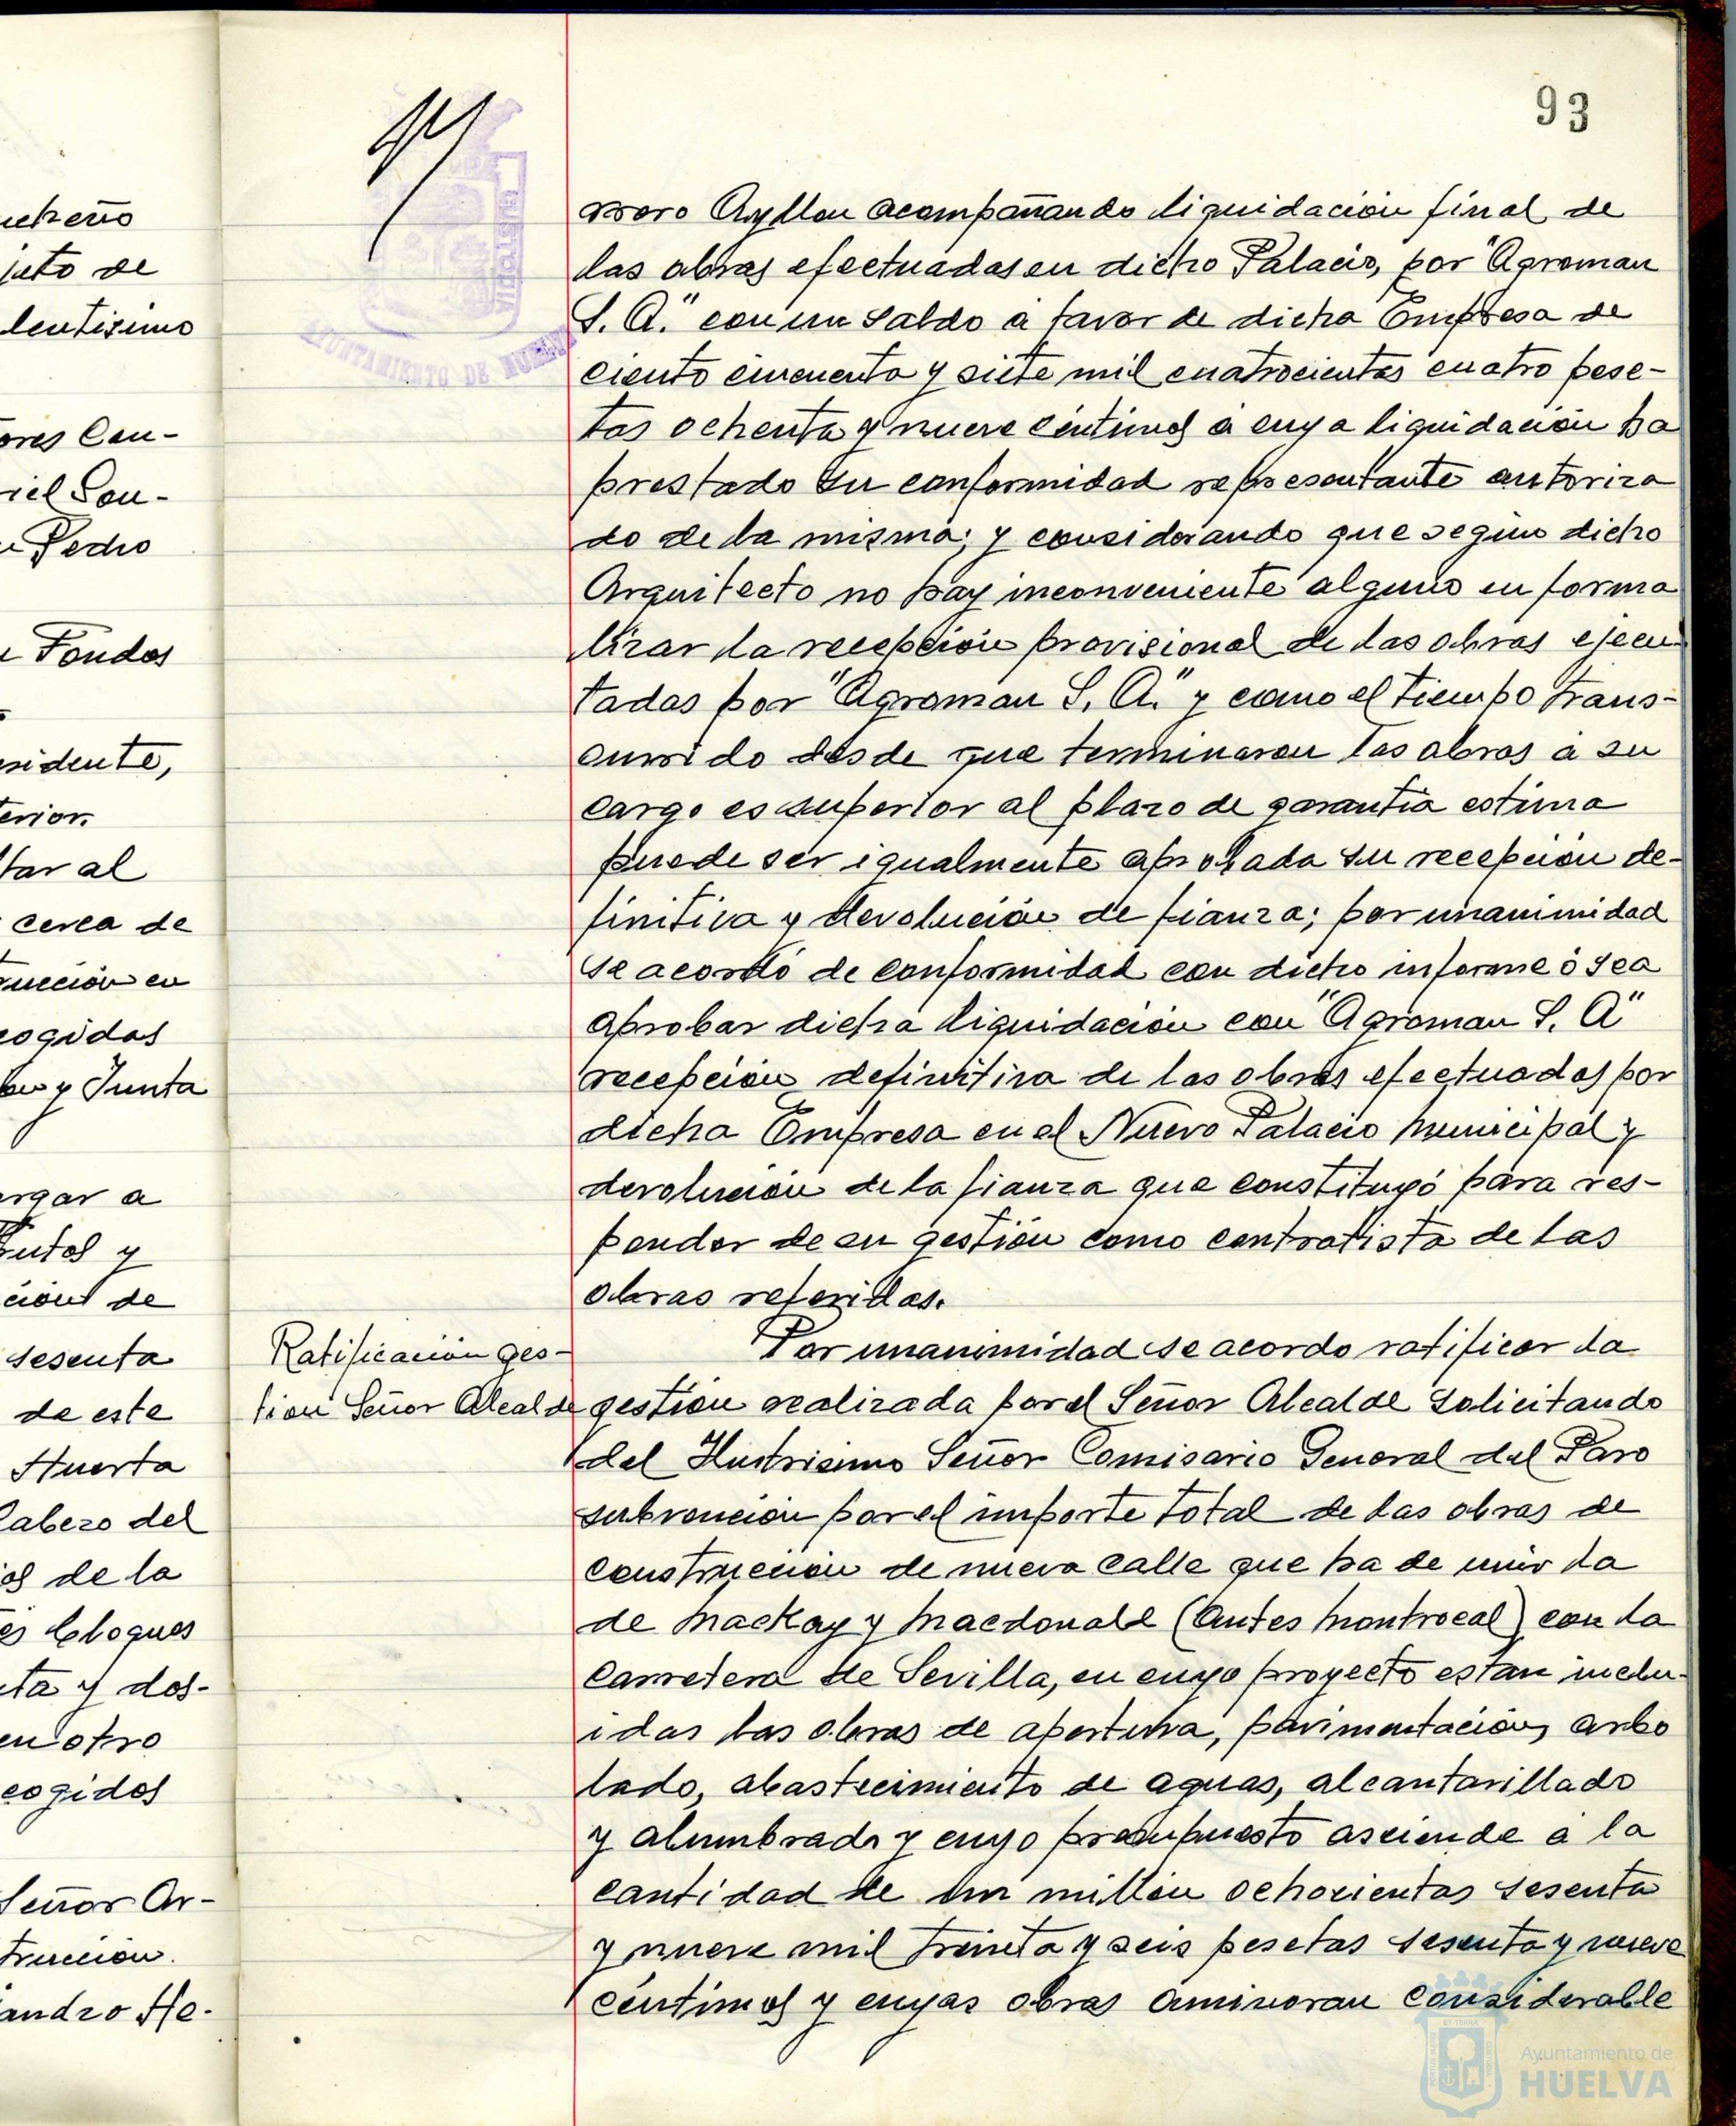 93
rrero Ayllon acompañando liquidación final de
las obras efectuadas en dicho Palacio, por "Agroman
S. A." con un saldo a favor de dicha Empresa de
ciento cincuenta y siete mil cuatrocientas cuatro pese-
tas ochenta y nueve céntimos a cuya liquidación ha
prestado su conformidad representante autoriza
do de la misma; y considerando que según dicho
Arquitecto no hay inconveniente alguno en forma
lizar la recepción provisional de las obras ejecu
tadas por "Agroman S. A." y como el tiempo trans-
currido desde que terminaron las obras a su
cargo es superior al plazo de garantía estima
puede ser igualmente aprobada su recepción de-
finitiva y devolución de fianza; por unanimidad
se acordó de conformidad con dicho informe ó sea
aprobar dicha liquidación con "Agroman S. A"
recepción definitiva de las obras efectuadas por
dicha Empresa en el Nuevo Palacio Municipal y
devolución de la fianza que constituyó para res-
ponder de su gestión como contratista de las
obras referidas.
Ratificación ges-
tion Señor Alcalde
Por unanimidad se acordo ratificar la
gestión realizada por el Señor Alcalde solicitando
del Ilustrisimo Señor Comisario General del Paro
subvención por el importe total de las obras de
construcción de nueva calle que ha de unir la
de Mackay y Macdonald (antes Montrocal) con la
Carretera de Sevilla, en cuyo proyecto estan inclu-
idas las obras de apertura, pavimentación, arbo
lado, abastecimiento de aguas, alcantarillado
y alumbrado y cuyo presupuesto asciende a la
cantidad de un millón ochocientas sesenta
y nueve mil treinta y seis pesetas sesenta y nueve
céntimos y cuyas obras aminoran considerable
AYUNTAMIENTO DE HUELVA
ucheño
juto de
lentisimo
ores Con-
riel Sou-
Pedro
Fondos
esidente,
terior.
tar al
cerca de
ucción en
cogidos
y Junta
argar a
y
de
sesenta
de este
Huerta
Cabezo del
de la
bloques
ta y dos-
en otro
cogidos
Señor Ar-
trucción.
andro He-
Ayuntamiento de
HUELVA